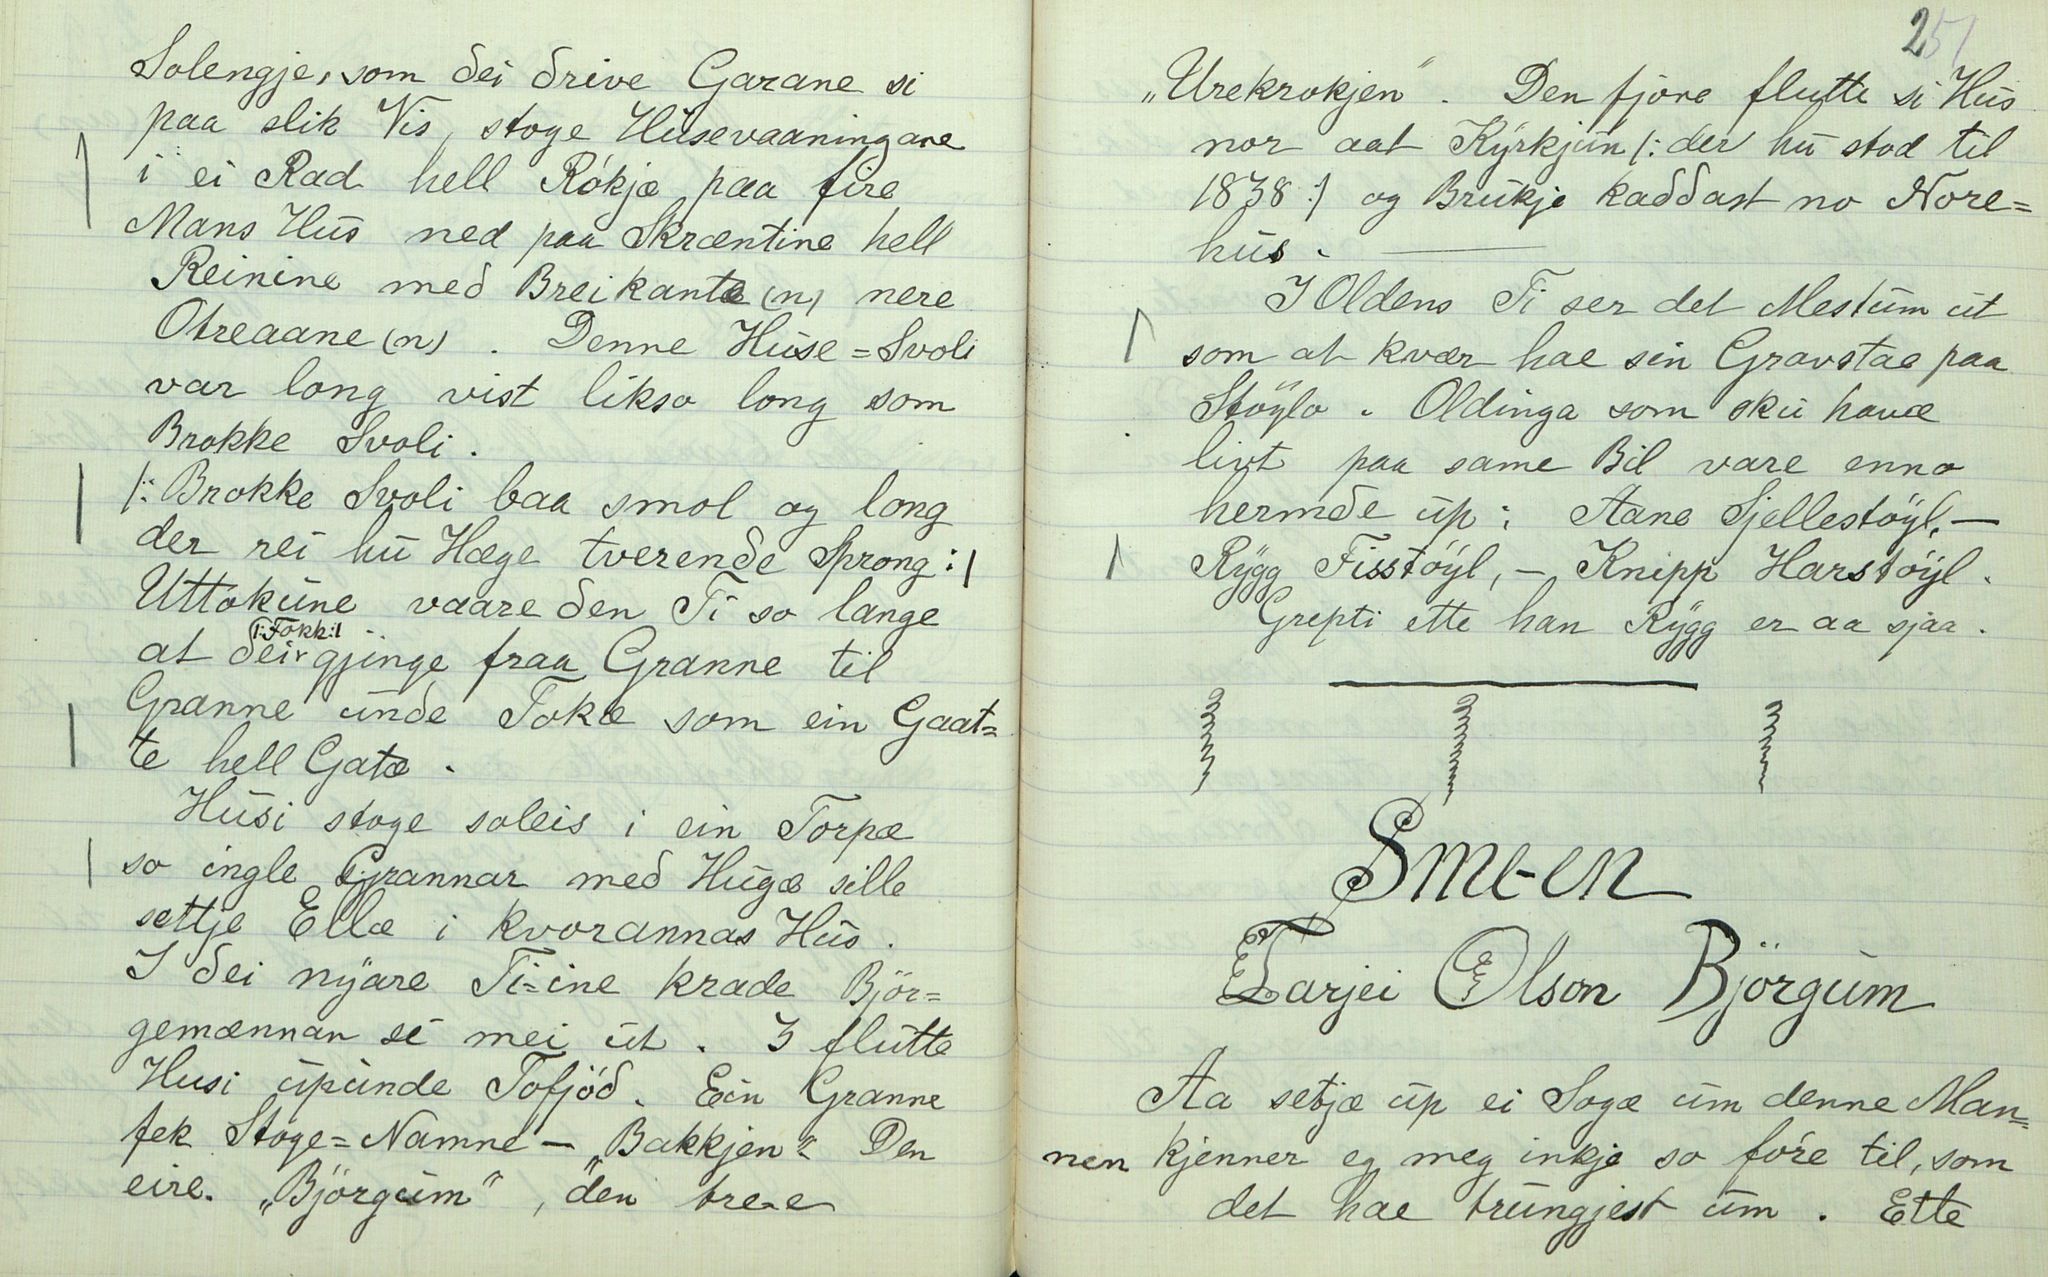 Solengje, som dei drive Garane si
paa slik Vis, stoge Husevaaningane
i ei Rad hell Rökjæ paa fire
Mans Hus ned paa Skræntine hell
Reinine med Breikante (n) nere
Otreaane (n). Denne Huse=Svoli
var long vist likso long som
Brokke Svoli.
/: Brokke Svoli baa smol og long
der rei hu Hæge tverende Sprong :/
Uttökune vaare den Ti so lange
/: Fokk :/
at dei gjinge fraa Granne til
Granne unde Tokæ som ein Gaat=
te hell Gatæ.
Husi stoge soleis i ein Torpæ
so ingle Grannar med Hugæ sille
settje Ellæ i kvorannas Hus.
I dei nyare Ti=ine krade Björ=
gemænnan si mei ut. 3 flutte
Husi upunde Tofjöd. Ein Granne
fek Stoge=Namne — „Bakkjen“. Den
eire. „Björgum“, den tre-e
251
„Urekrokjen“. Den fjore flutte si Hus
nor aat Kyrkjun /: der hu stod til
1838 :/ og Brukje kaddast no Nore=
hus. —
I Oldens Ti ser det Mestum ut
som at kvær hae sin Gravstae paa
Stöylo. Oldinga som sku havæ
livt paa same Bil vare enno
hermde up: Aane Sjellestöyl, —
Rygg Fisstöyl, — Knipp Harstöyl.
Grepti ette han Rygg er aa sjaa.
Sme-en
Tarjei Olson Björgum
Aa setjæ up ei Sogæ um denne Man=
nen kjenner eg meg inkje so före til, som
det hae trungjest um. Ette